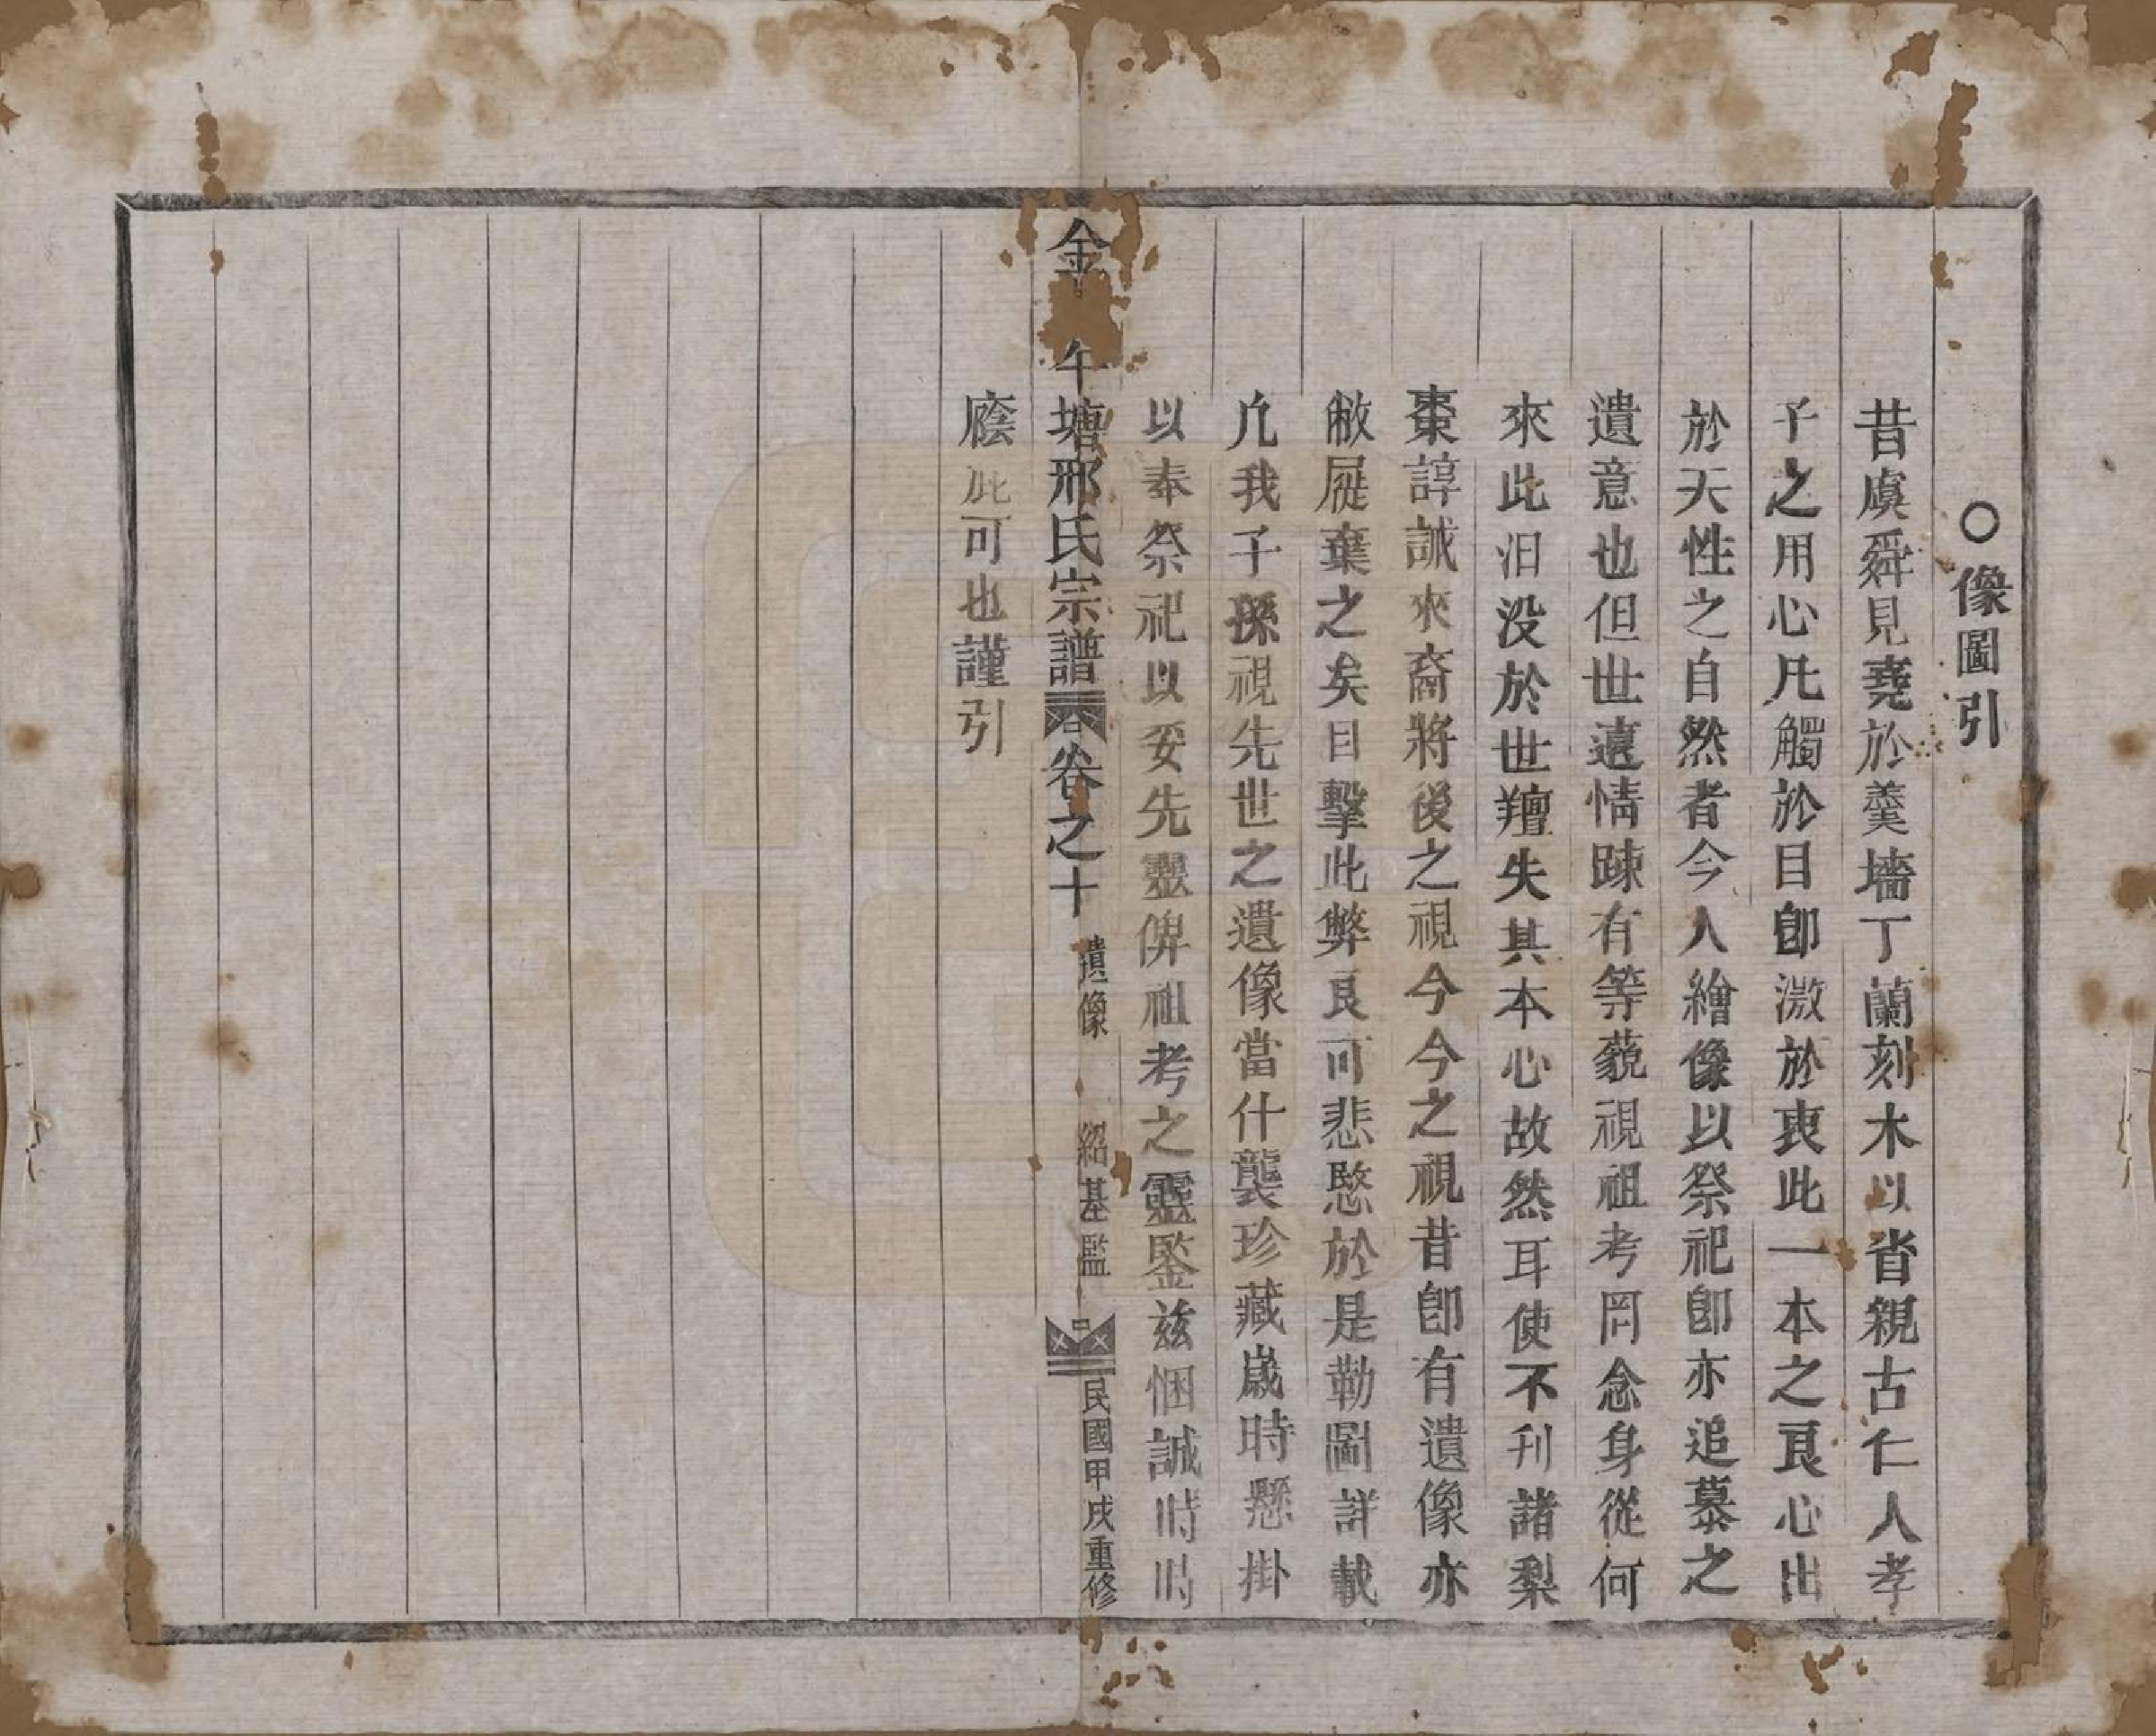 ○像圖引
昔虞舜見堯於羹墻丁蘭刻木以省親古仁人孝
子之用心凡觸於目卽激於衷此一本之良心出
於天性之自然者今人繪像以祭祀卽亦追慕之
遺意也但世遠情踈有等藐視祖考罔念身從何
來此汨没於世羶失其本心故然耳使不刋諸梨
棗諄誡來裔將後之視今今之視昔卽有遺像亦
敝屣棄之矣目擊此弊良可悲愍於是勒圖詳載
凢我子孫視先世之遺像當什襲珍藏歲時懸掛
以奉祭祀以妥先靈俾祖考之靈鍳兹悃誠時時
廕此可也謹引
金 午塘邢氏宗譜 卷之十 遺像 紹基監 民國甲戌重修